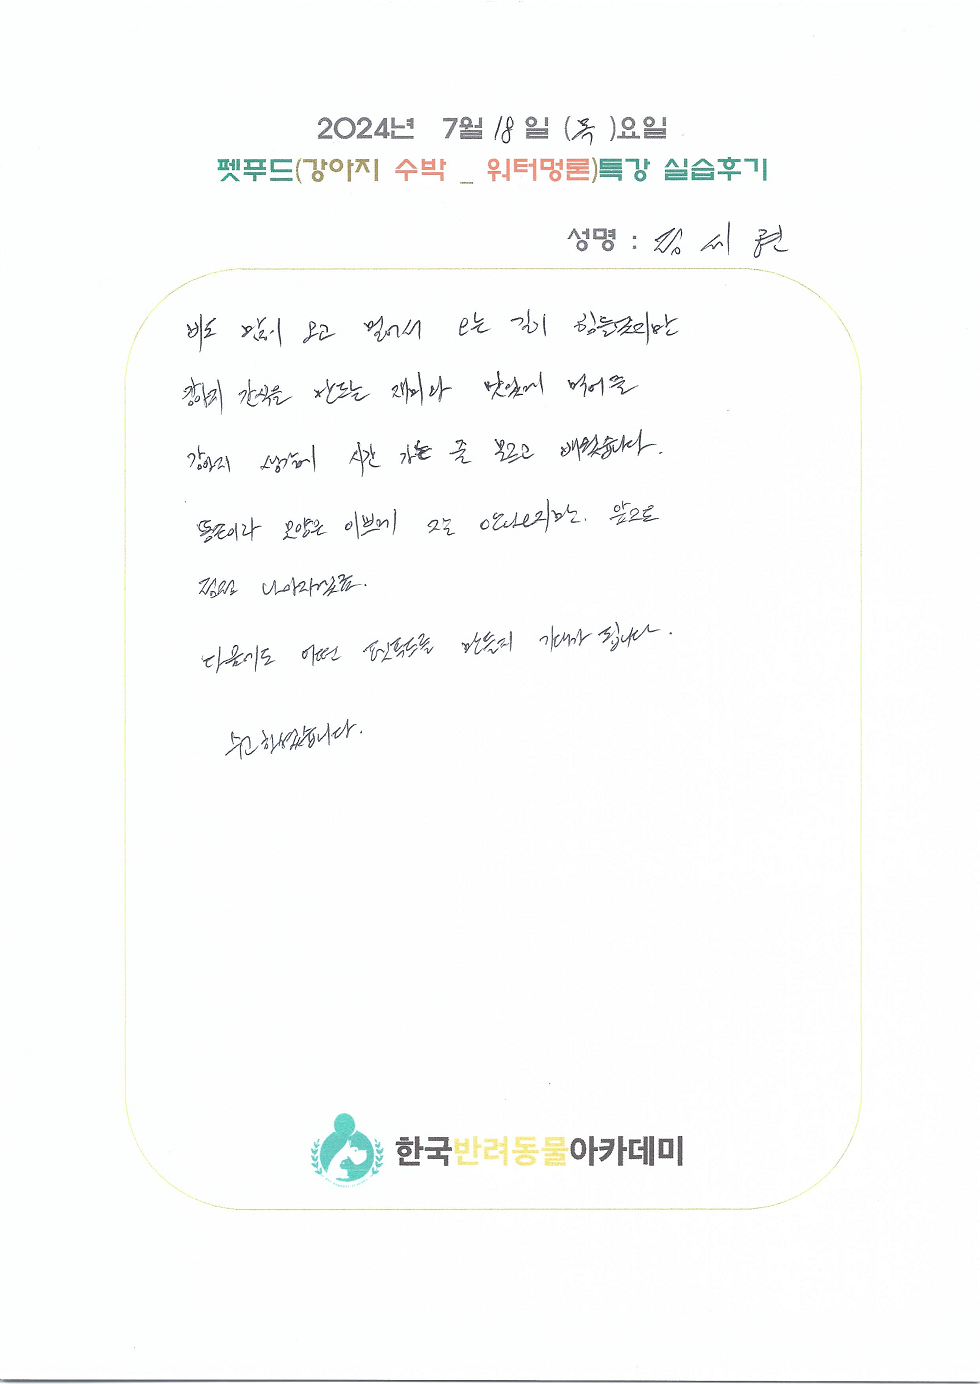 2024년 7월 18일 (목)요일
펫푸드(강아지 수박 _ 워터멍론)특강 실습후기
성명 : 김 세 련
비도 많이 오고 멀어서 오는 길이 힘들었지만
강아지 간식을 만드는 재미와 맛있게 먹어줄
강아지 생각에 시간 가는 줄 모르고 배웠습니다.
똥손이라 모양은 이쁘게 안나오지만. 앞으로
점점 나아지겠죠.
다음에도 어떤 펫푸드를 만들지 기대가 됩니다.
수고하셨습니다.
한국반려동물아카데미